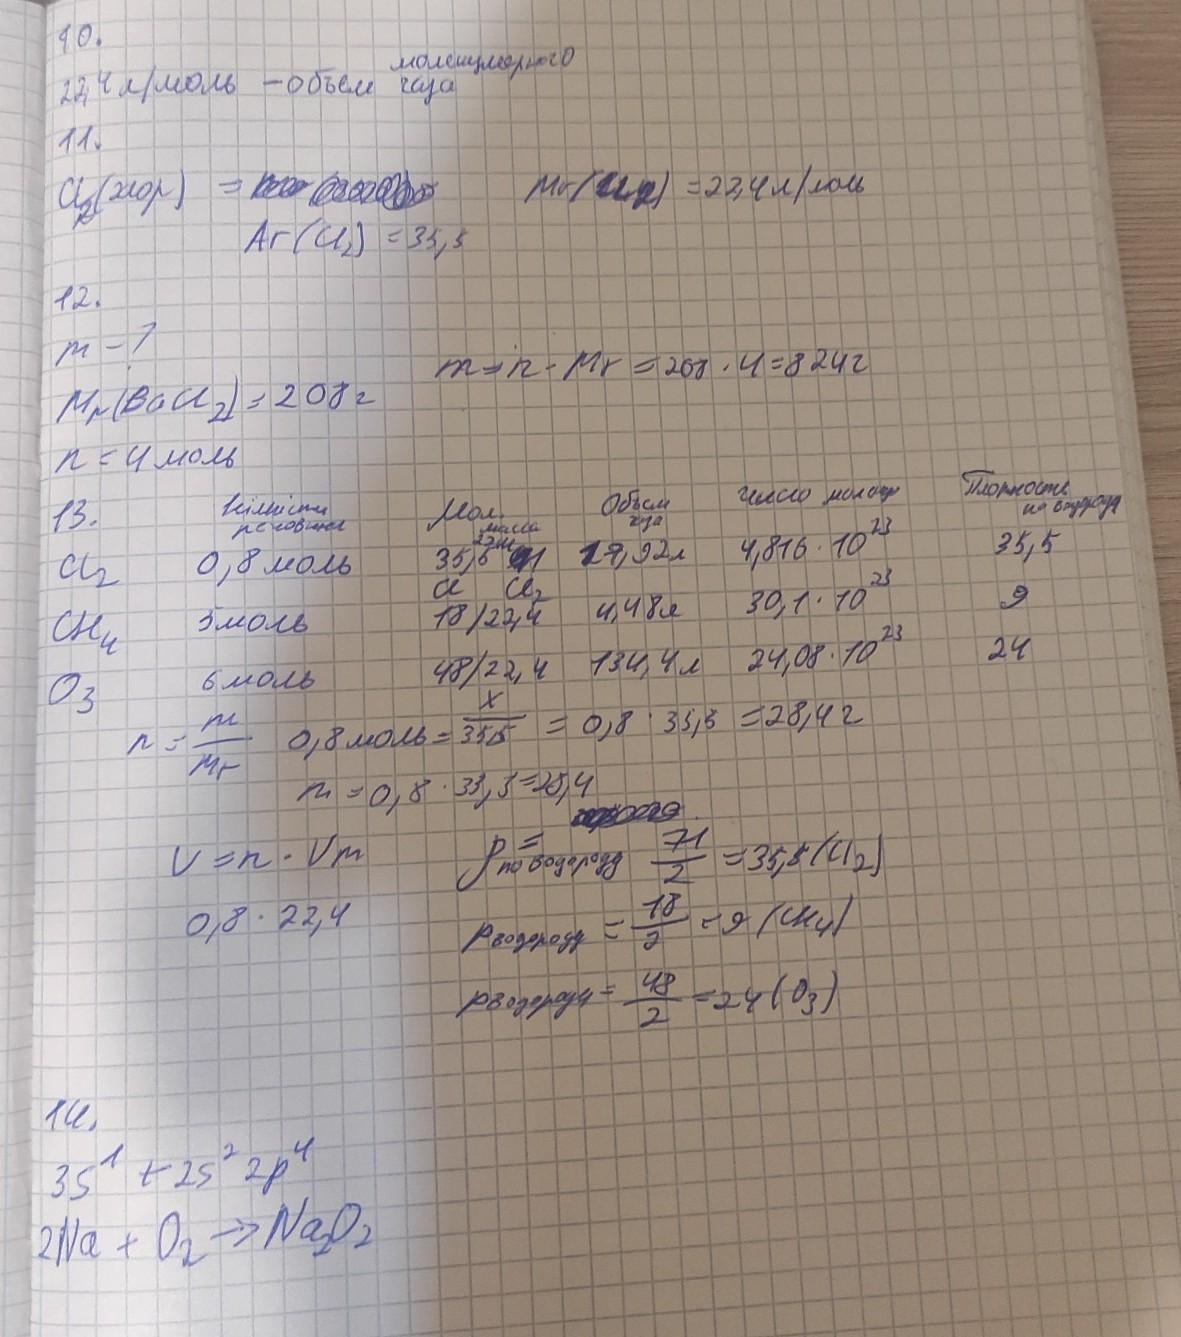 10.
22,4 л/моль – объем молекулярного газа
11.
Cl₂(хлор) = Mr(Cl₂) = 22,4 л/моль
Ar(Cl₂) = 35,5
12.
m – ?
m = n · Mr = 208 · 4 = 824г
Mr(BaCl₂) = 208г
n = 4 моль
13. кількісти речовини Мол. масса Объем газа число молекул Плотность по водороду
Cl₂ 0,8 моль 35,5 71 17,92л 4,816 · 10²³ 35,5
Cl Cl₂
CH₄ 5 моль 18/22,4 4,48л 30,1 · 10²³ 9
O₃ 6 моль 48/22,4 134,4л 24,08 · 10²³ 24
n = m/Mr 0,8 моль = x/35,5 = 0,8 · 35,5 = 28,4г
m = 0,8 · 35,5 = 28,4
V = n · Vm ρ по водороду = 71/2 = 35,5 (Cl₂)
0,8 · 22,4 ρ водороду = 18/2 = 9 (CH₄)
ρ водороду = 48/2 = 24 (O₃)
14.
3s¹ + 2s² 2p⁴
2Na + O₂ → Na₂O₂